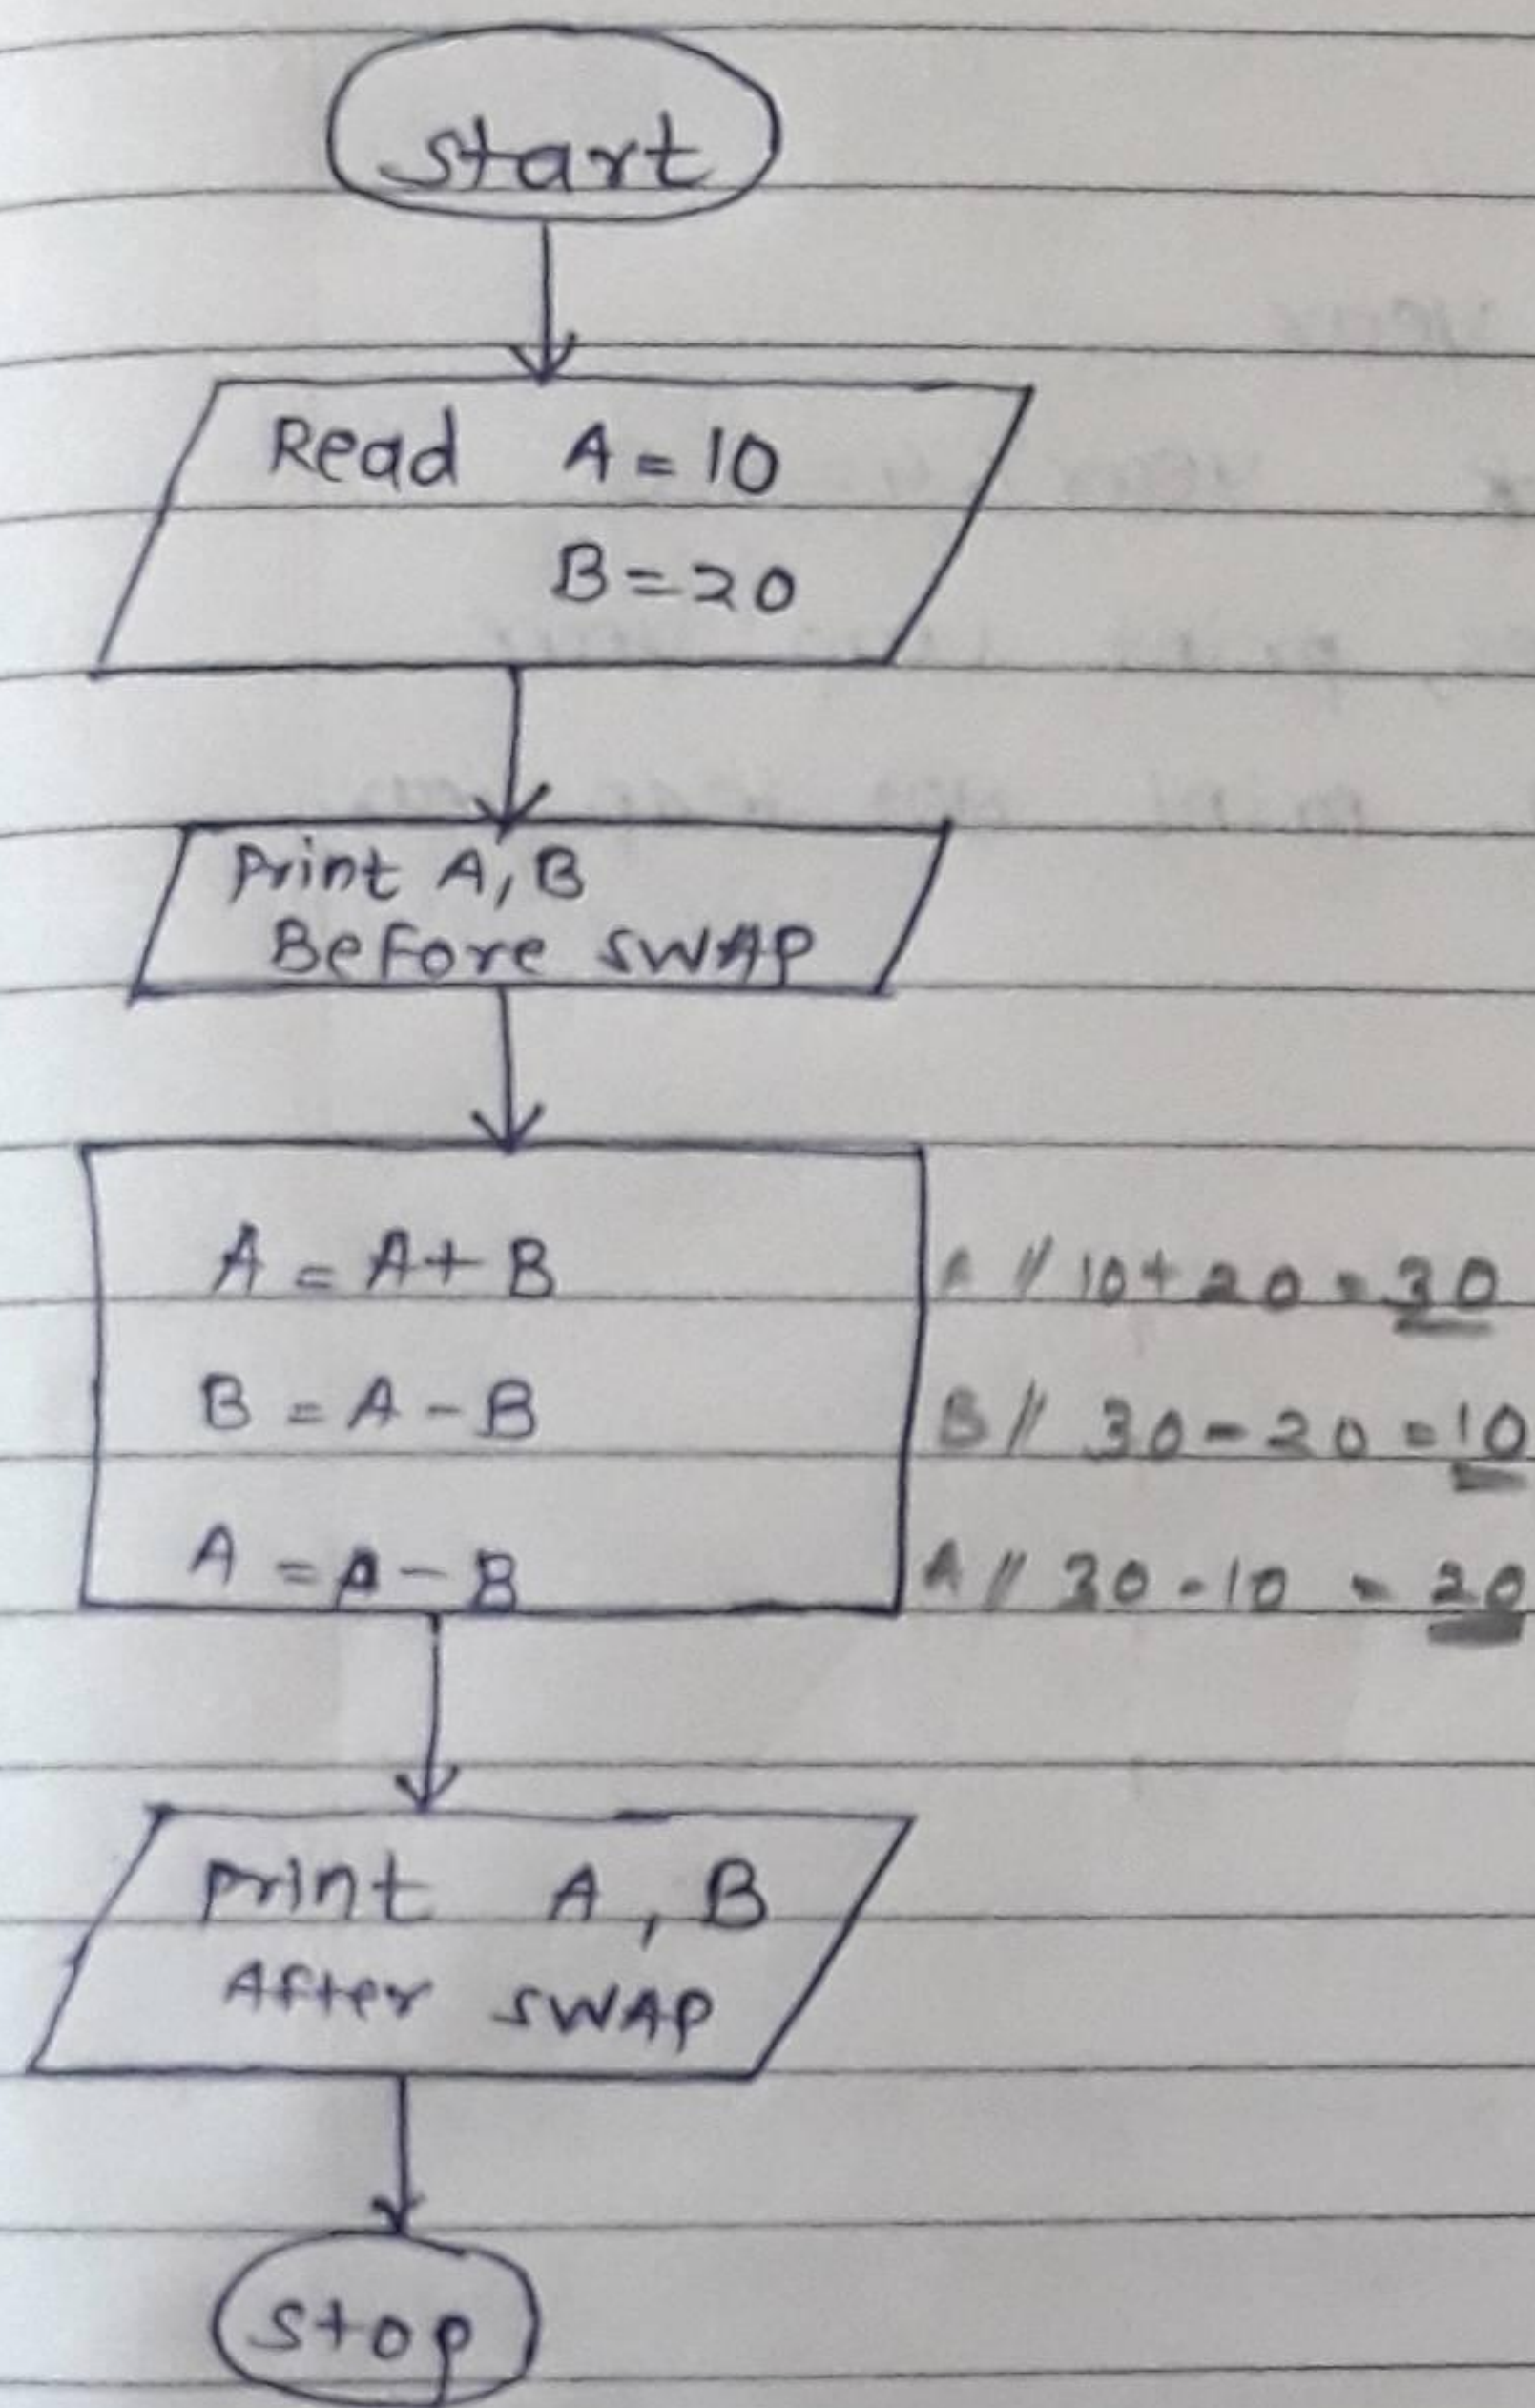 start
Read A = 10
B = 20
Print A, B
Before SWAP
A = A + B A // 10 + 20 = 30
B = A - B B // 30 - 20 = 10
A = A - B A // 30 - 10 = 20
print A, B
After SWAP
stop